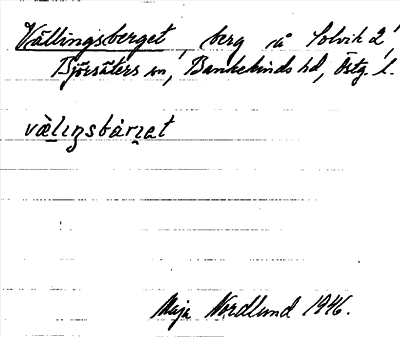 Vällingsberget, berg på Solvik 2',
Björsäters sn, Bankekinds hd, Östg. l.
vàlıŋsbárıet
Maja Nordlund 1946.